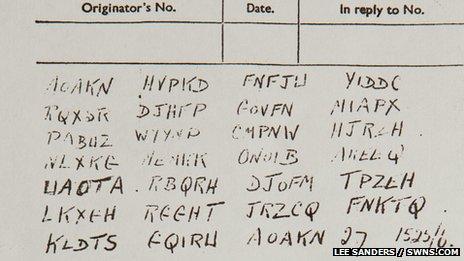 Originator's No. Date. In reply to No.
AOAKN HVPKD FNFJU YIDDC
RQXSR DJHFP GOVFN MIAPX
PABUZ WYYNP CMPNW HJRZH
NLXKG MEMKK ONOIB AKEEQ
UAOTA RBQRH DJOFM TPZEH
LKXGH RGGHT JRZCQ FNKTQ
KLDTS GQIRU AOAKN 27 1525/6
LEE SANDERS / SWNS.COM